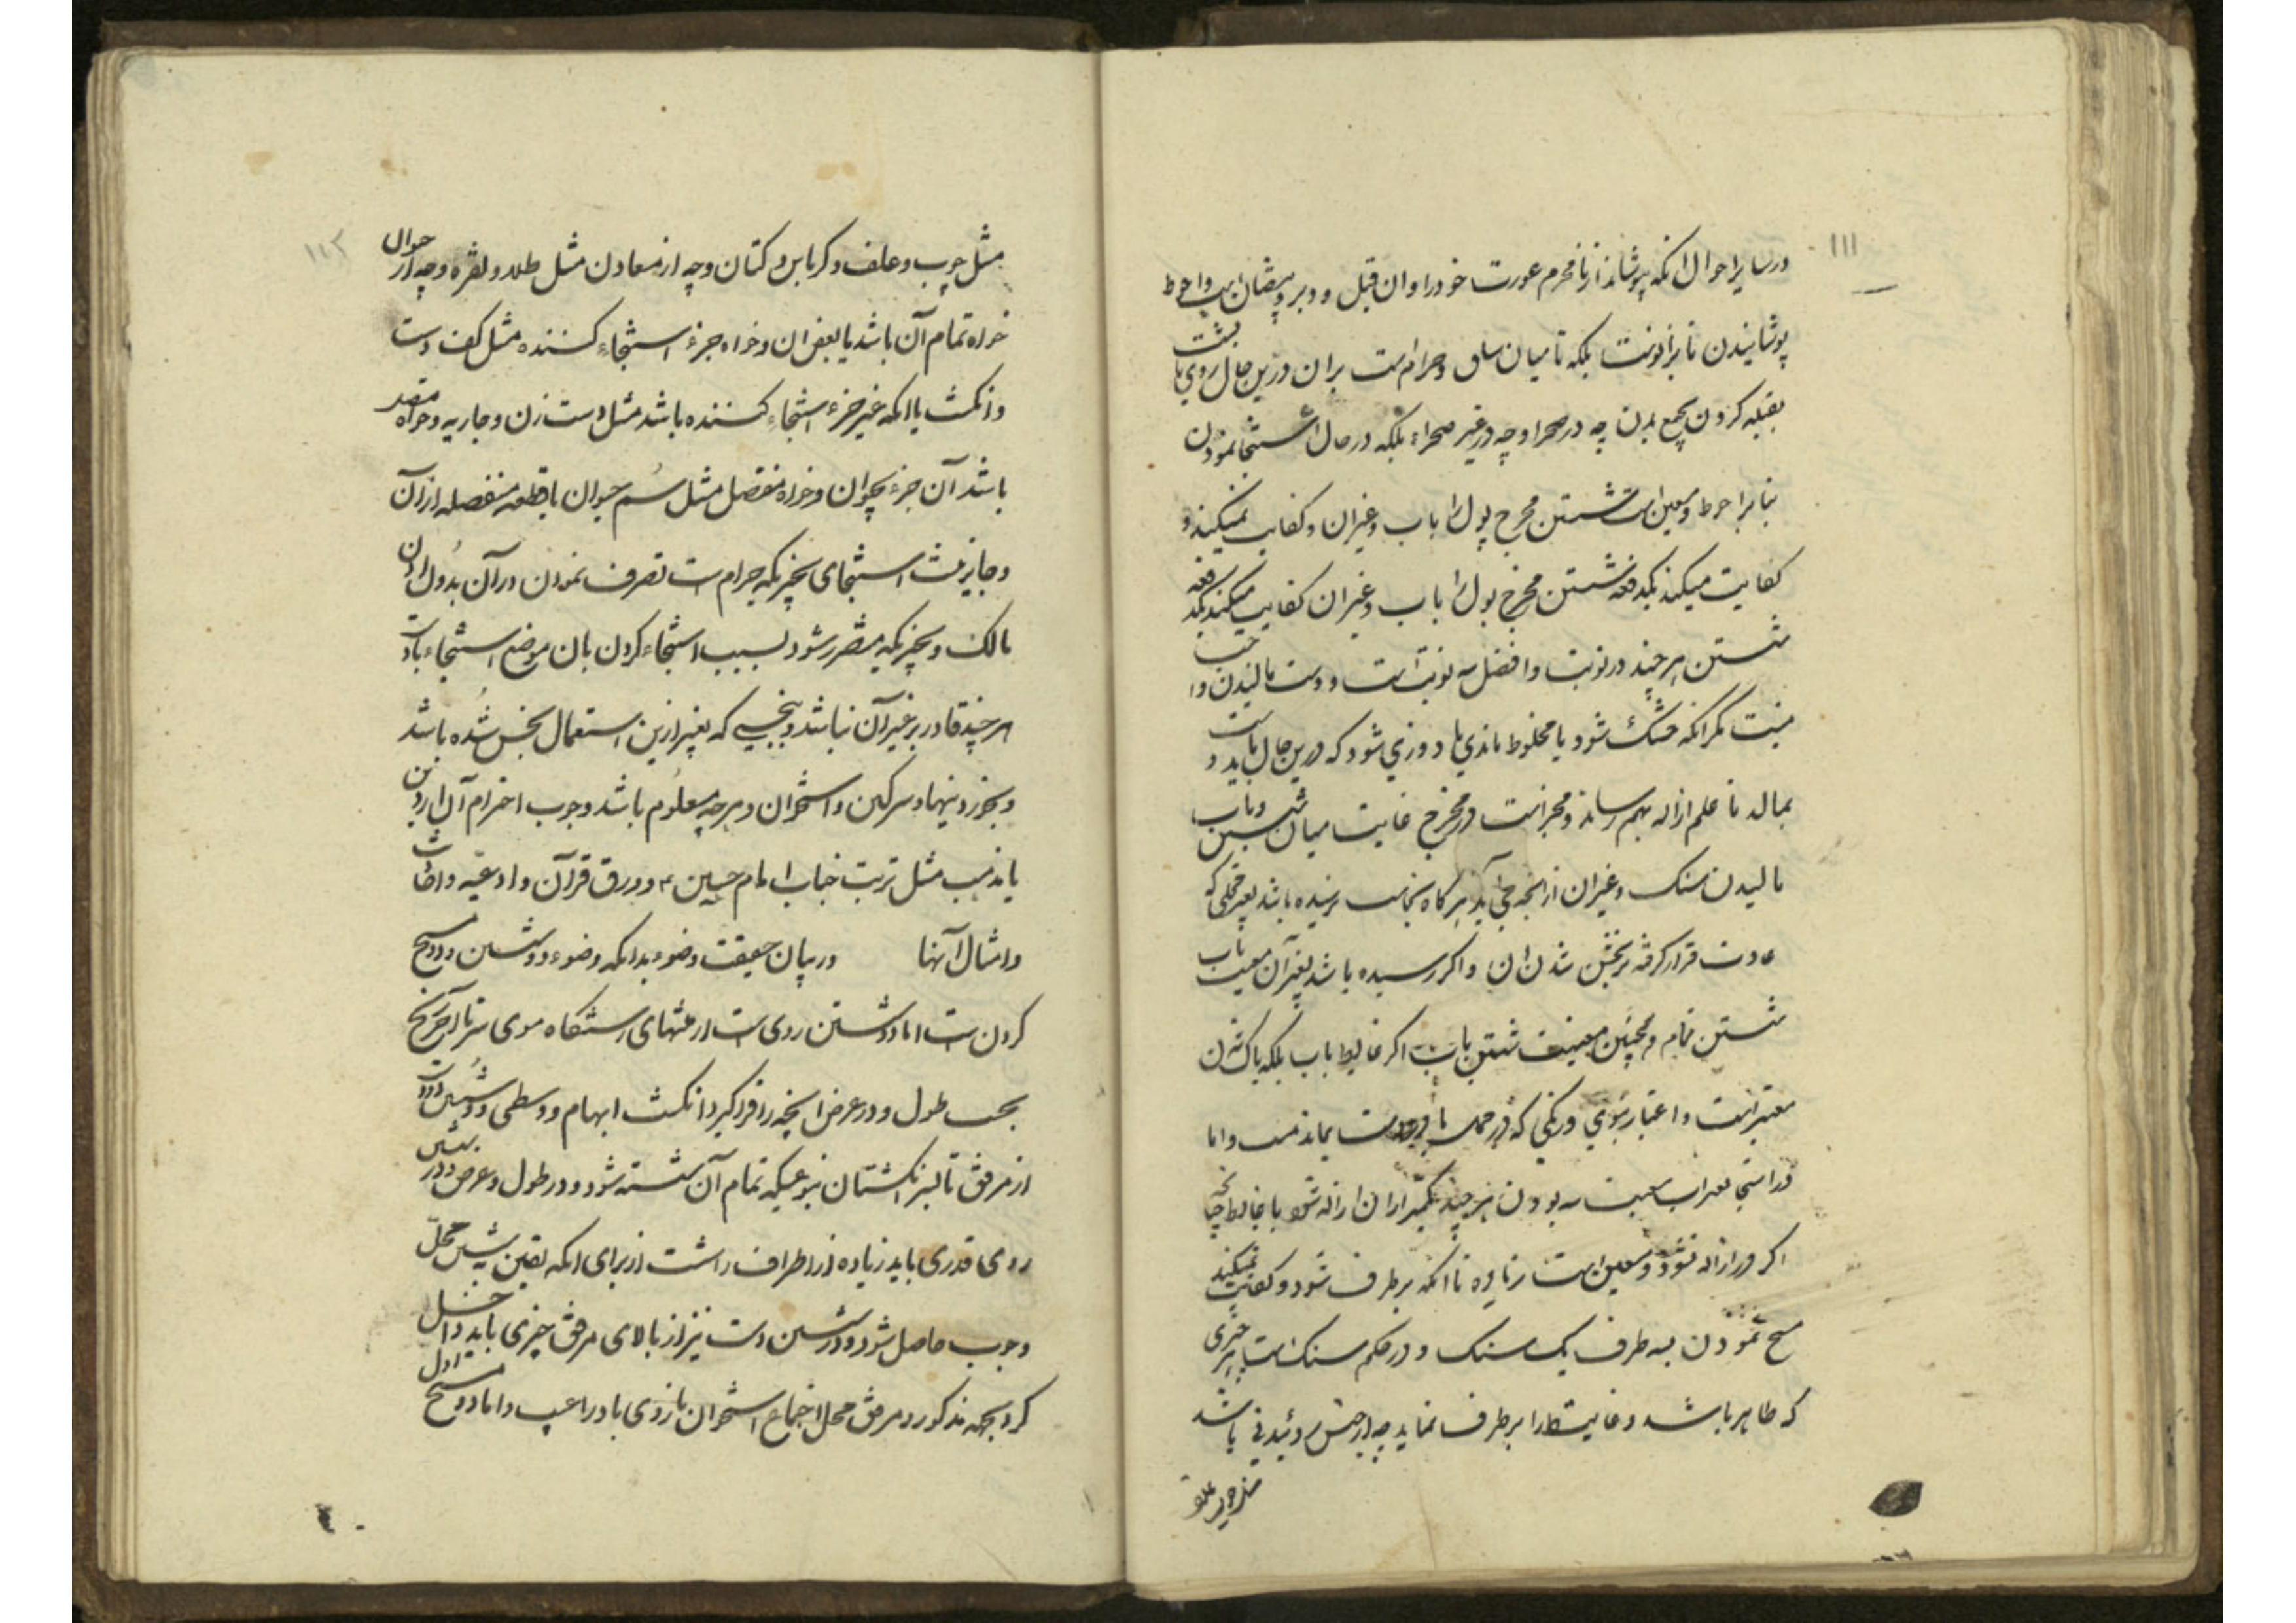 ۱۱۱
در سایر احوال انکه بپوشاند از نامحرم عورت خود را و ان قبل و دبر و بیضتان است و احوط
پوشانیدن تا بزانوست بلکه تا میان ساق و حرامست بران درین حال روی یا پشت
بقبله کردن بجمیع بدن چه در صحرا و چه در غیر صحراء بلکه در حال استنجا نمودن
بنا بر احوط و معین است شستن مخرج بول را باب و غیر ان کفایت نمیکند و
کفایت میکند یکدفعه شستن مخرج بول را باب و غیر ان کفایت میکند یکدفعه
شستن هر چند در نوبت و افضل سه نوبت است و دست مالیدن واجب
نیست مکر انکه خشک شود یا مخلوط با مذی یا ودی شود که درین حال باید دست
بمالد تا علم ازاله بهم رساند و مخیر است در مخرج غایت میان شستن باب و
مالیدن سنک و غیر ان از انچه می آید هر کاه نجاست نرسیده باشد بغیر محلی که
عادت قرار کرفته بر نجس شدن ان و اکر رسیده باشد بغیر آن معین است باب
شستن تمام و همچنین معین است شستن باب اکر غایط باب بلکه پاک شدن
معتبر است و اعتبار ببوی و رنکی که در محل یا در دست بماند نیست و اما
در استنجا بغیر اب معین است سه بودن هر چند بکمتر از ان ازاله شود با غایط چنانچه
اکر ازاله نشود معین است زیاده تا انکه بر طرف شود و کفایت نمیکند
مسح نمودن بسه طرف یک سنک و در حکم سنک است هر چیزی
که طاهر باشد و غایط را بر طرف نماید چه از جنس روئیدنی باشد
مثل چوب و علف
مثل چوب و علف و کرباس و کتان و چه از معادن مثل طلا و نقره و چه از حیوان
خواه تمام آن باشد یا بعض ان و خواه جزء استنجاء کننده مثل کف دست
و انکشت یا انکه غیر جزء استنجاء کننده باشد مثل دست زن و جاریه و خواه متصل
باشد آن جزء بحیوان و خواه منفصل مثل سُم حیوان یا قطعه منفصله از آن
و جایز نیست استنجای بچیزیکه حرامست تصرف نمودن در آن بدون اذن
مالک و بچیزیکه متضرر شود بسبب استنجاء کردن بان موضع استنجاء یا دست
هر چند قادر بر غیر آن نباشد و بنجسی که بغیر ازین استعمال نجس شده باشد
و بخوردنیها و سرکین و استخوان و هر چه معلوم باشد وجوب احترام آن از دین
یا مذهب مثل تربت جناب امام حسین ع و ورق قرآن و ادعیه و
و امثال آنها در بیان حقیقت وضو بدانکه وضوء دو شستن و دو مسح
کردن است اما دو شستن روی است از منتهای رستنکاه موی سر تا آخر زنخ
بحسب طول و در عرض انچه را فرا کیرد انکشت ابهام و وسطی و شستن دو دست
از مرفق تا سر انکشتان بنوعیکه تمام آن شسته شود و در طول و عرض در شستن
روی قدری باید زیاده از اطراف راشست از برای انکه یقین بشستن محل
وجوب حاصل شود و در شستن دست نیز از بالای مرفق چیزی باید داخل
کرد بجهه مذکور و مرفق محل اجتماع استخوان بازوی با ذراع است و اما دو مسح اول